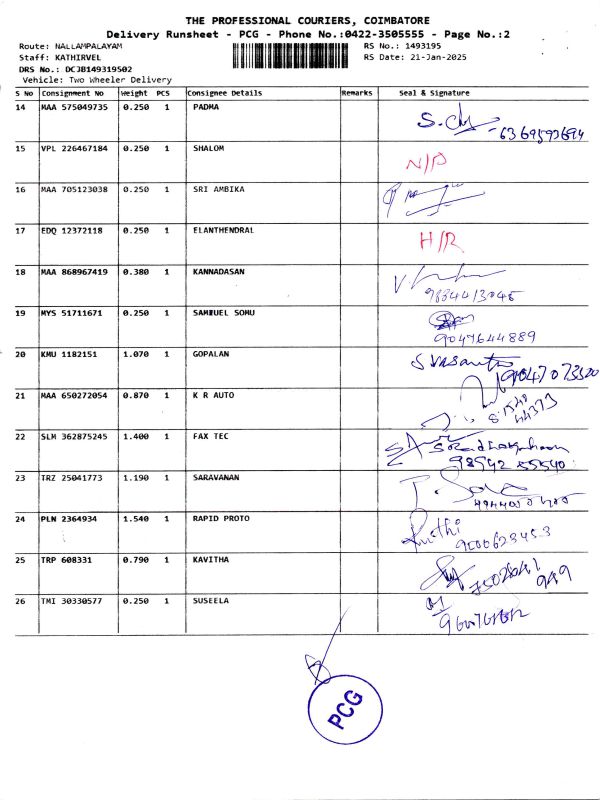 THE PROFESSIONAL COURIERS, COIMBATORE
Delivery Runsheet - PCG - Phone No.:0422-3505555 - Page No.:2
Route: NALLAMPALAYAM RS No.: 1493195
Staff: KATHIRVEL RS Date: 21-Jan-2025
DRS No.: DCJB149319502
Vehicle: Two Wheeler Delivery
S No Consignment No Weight PCS Consignee Details Remarks Seal & Signature
14 MAA 575049735 0.250 1 PADMA
15 VPL 226467184 0.250 1 SHALOM N/D
16 MAA 705123038 0.250 1 SRI AMBIKA
17 EDQ 12372118 0.250 1 ELANTHENDRAL H/R
18 MAA 868967419 0.380 1 KANNADASAN
19 MYS 51711671 0.250 1 SAMIUEL SOMU
9047644889
20 KMU 1182151 1.070 1 GOPALAN
21 MAA 650272054 0.870 1 K R AUTO
22 SLM 362875245 1.400 1 FAX TEC
23 TRZ 25041773 1.190 1 SARAVANAN
24 PLN 2364934 1.540 1 RAPID PROTO
25 TRP 608331 0.790 1 KAVITHA
26 TMI 30330577 0.250 1 SUSEELA
PCG